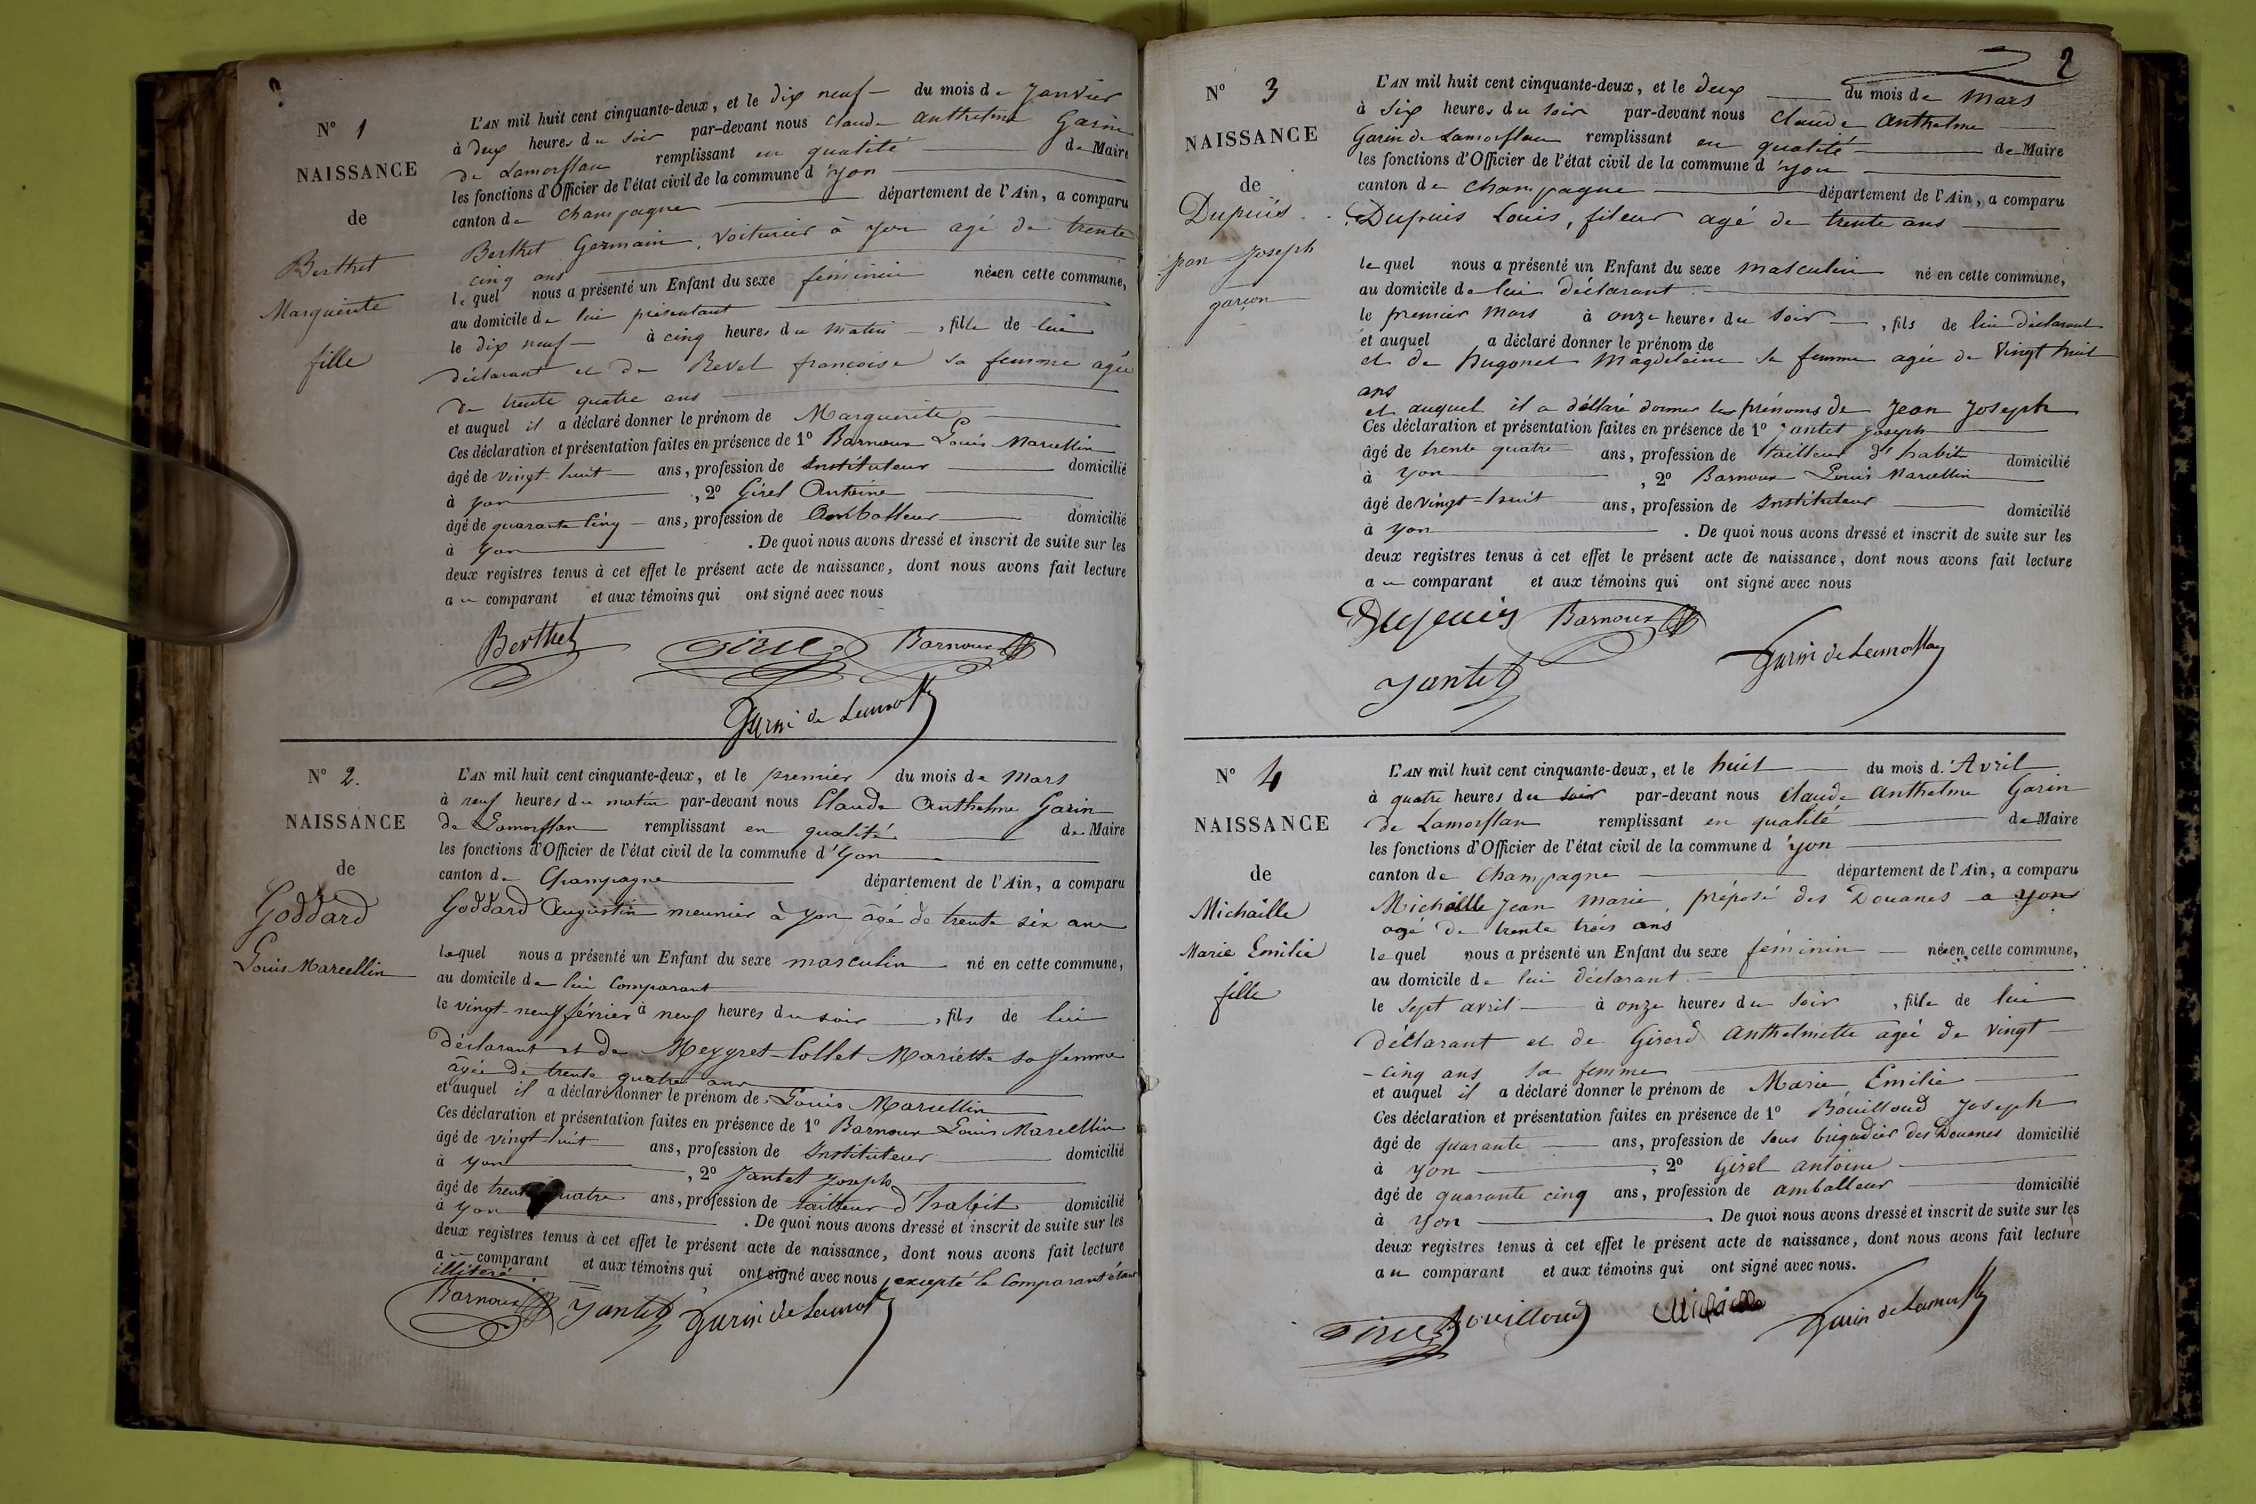 N° 1
NAISSANCE
de
Berthet
Marguerite
fille
L'AN mil huit cent cinquante-deux, et le dix neuf du mois de Janvier
à deux heures du soir par-devant nous Claude Anthelme Garin
de Lamorflan remplissant en qualité de Maire
les fonctions d'Officier de l'état civil de la commune d'yon
canton de Champagne département de l'Ain, a comparu
Berthet Germain, voiturier à yon agé de trente
cinq ans
le quel nous a présenté un Enfant du sexe féminin née en cette commune,
au domicile de lui présentant
le dix neuf à cinq heures du matin, fille de lui
déclarant et de Revel françoise sa femme agée
de trente quatre ans
et auquel il a déclaré donner le prénom de Marguerite
Ces déclaration et présentation faites en présence de 1° Barnoux Louis Marcellin
âgé de vingt-huit ans, profession de Instituteur domicilié
à yon, 2° Girel Antoine
âgé de quarante cinq ans, profession de Amballeur domicilié
à yon. De quoi nous avons dressé et inscrit de suite sur les
deux registres tenus à cet effet le présent acte de naissance, dont nous avons fait lecture
au comparant et aux témoins qui ont signé avec nous
Berthet Girel Barnoux
Garin de Lamorflan
N° 2.
NAISSANCE
de
Goddard
Louis Marcellin
L'AN mil huit cent cinquante-deux, et le premier du mois de Mars
à neuf heures du matin par-devant nous Claude Anthelme Garin
de Lamorflan remplissant en qualité de Maire
les fonctions d'Officier de l'état civil de la commune d'yon
canton de Champagne département de l'Ain, a comparu
Goddard Augustin meunier à yon âgé de trente six ans
lequel nous a présenté un Enfant du sexe masculin né en cette commune,
au domicile de lui Comparant
le vingt-neuf février à neuf heures du soir, fils de lui
déclarant et de Meygret-Collet Mariette sa femme
âgée de trente quatre ans
et auquel il a déclaré donner le prénom de Louis Marcellin
Ces déclaration et présentation faites en présence de 1° Barnoux Louis Marcellin
âgé de vingt-huit ans, profession de Instituteur domicilié
à yon, 2° Jantet Joseph
âgé de trente quatre ans, profession de tailleur d'habit domicilié
à yon. De quoi nous avons dressé et inscrit de suite sur les
deux registres tenus à cet effet le présent acte de naissance, dont nous avons fait lecture
au comparant et aux témoins qui ont signé avec nous, excepté le Comparant étant
illitéré.
Barnoux Jantet Garin de Lamorflan
2
N° 3
NAISSANCE
de
Dupuis
Jean Joseph
garçon
L'AN mil huit cent cinquante-deux, et le deux du mois de Mars
à six heures du soir par-devant nous Claude Anthelme
Garin de Lamorflan remplissant en qualité de Maire
les fonctions d'Officier de l'état civil de la commune d'yon
canton de Champagne département de l'Ain, a comparu
Dupuis Louis, fileur agé de trente ans
le quel nous a présenté un Enfant du sexe masculin né en cette commune,
au domicile de lui déclarant
le premier Mars à onze heures du soir, fils de lui déclarant
et auquel a déclaré donner le prénom de
et de Hugonet Magdelaine sa femme agée de vingt huit
ans
et auquel il a déclaré donner les prénoms de Jean Joseph
Ces déclaration et présentation faites en présence de 1° Jantet Joseph
âgé de trente quatre ans, profession de tailleur d'habit domicilié
à yon, 2° Barnoux Louis Marcellin
âgé de vingt-huit ans, profession de Instituteur domicilié
à yon. De quoi nous avons dressé et inscrit de suite sur les
deux registres tenus à cet effet le présent acte de naissance, dont nous avons fait lecture
au comparant et aux témoins qui ont signé avec nous
Dupuis Barnoux
Jantet Garin de Lamorflan
N° 4
NAISSANCE
de
Michaille
Marie Emilie
fille
L'AN mil huit cent cinquante-deux, et le huit du mois d'Avril
à quatre heures du soir par-devant nous Claude Anthelme Garin
de Lamorflan remplissant en qualité de Maire
les fonctions d'Officier de l'état civil de la commune d'yon
canton de Champagne département de l'Ain, a comparu
Michaille Jean Marie, préposé des Douanes a yon
agé de trente trois ans
le quel nous a présenté un Enfant du sexe féminin née en cette commune,
au domicile de lui déclarant
le sept avril à onze heures du soir, fille de lui
déclarant et de Girerd Anthelmette agée de vingt-
-cinq ans sa femme
et auquel il a déclaré donner le prénom de Marie Emilie
Ces déclaration et présentation faites en présence de 1° Bouilloud Joseph
âgé de quarante ans, profession de sous brigadier des Douanes domicilié
à yon, 2° Girel antoine
âgé de quarante cinq ans, profession de amballeur domicilié
à yon. De quoi nous avons dressé et inscrit de suite sur les
deux registres tenus à cet effet le présent acte de naissance, dont nous avons fait lecture
au comparant et aux témoins qui ont signé avec nous.
Girel Bouilloud Michaille Garin de Lamorflan